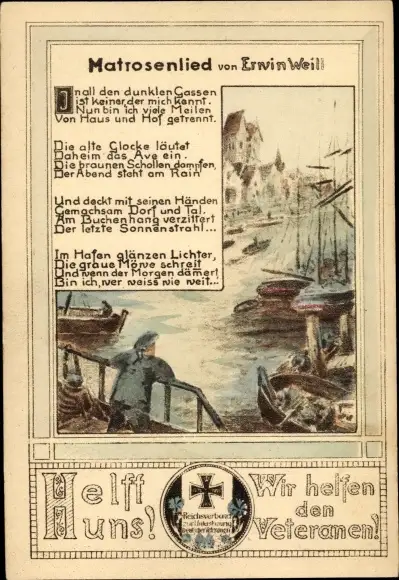 Matrosenlied von Erwin Weill
In all den dunklen Gassen
ist keiner, der mich kennt.
Nun bin ich viele Meilen
Von Haus und Hof getrennt.
Die alte Glocke läutet
Daheim das Ave ein.
Die braunen Schollen dampfen,
Der Abend steht am Rain
Und deckt mit seinen Händen
Gemachsam Dorf und Tal.
Am Buchenhang verzittert
Der letzte Sonnenstrahl...
Im Hafen glänzen Lichter,
Die graue Möwe schreit
Und wenn der Morgen dämert
Bin ich, wer weiss wie weit...
Helft
uns!
Reichsverband
zur Unterstützung
Wir helfen
den
Veteranen!